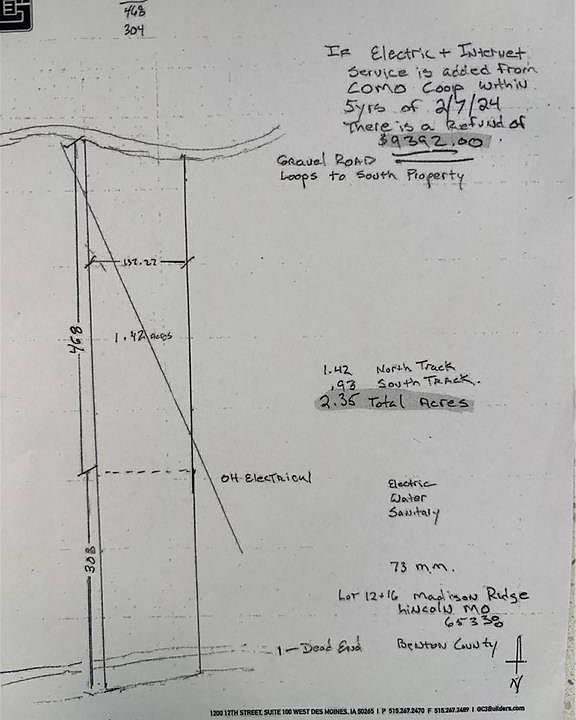 468
304
IF Electric + Internet
Service is added from
COMO COOP within
5yrs of 2/7/24
There is a Refund of
$9392.00
Gravel ROAD
Loops to South Property
132.22
468
1.42 Acres
1.42 North Track
.93 South TRACK.
2.35 Total Acres
OH Electrical
Electric
Water
Sanitary
308
73 m.m.
Lot 12+16 Madison Ridge
Lincoln MO
65338
1-Dead End
Benton County
N
1200 12TH STREET, SUITE 100 WEST DES MOINES, IA 50265 | P 515.267.2470 F 515.267.2489 | GC3Builders.com